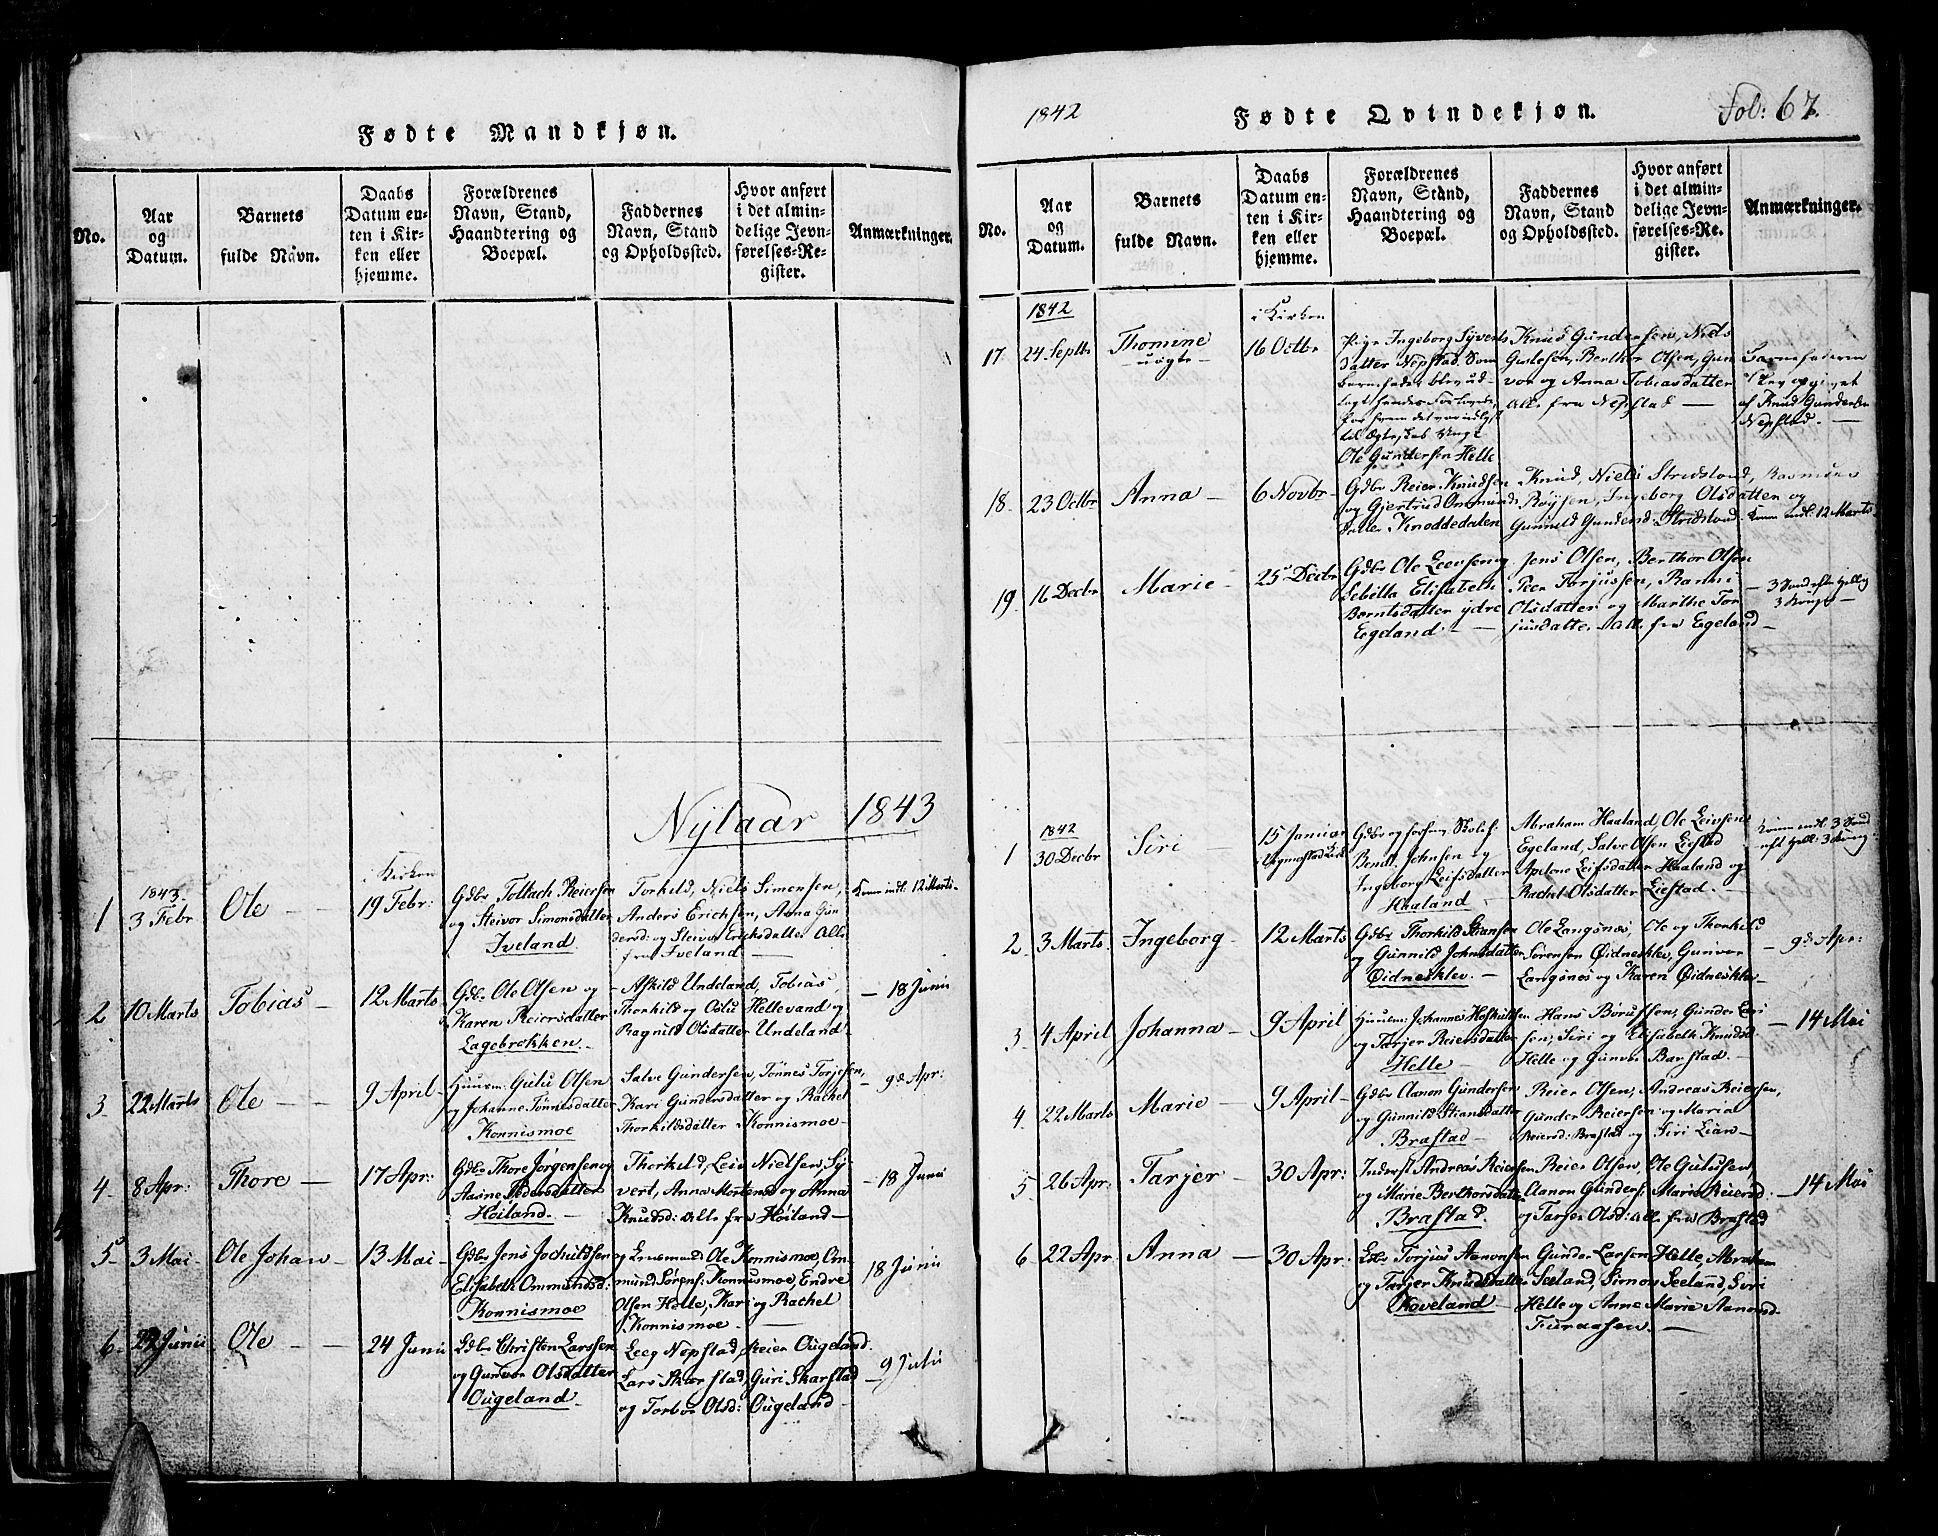 Fødte Mandkjøn.
No.
Aar
og
Datum.
Barnets
fulde Navn.
Daabs
Datum en-
ten i Kir-
ken eller
hjemme.
Forældrenes
Navn, Stand,
Haandtering og
Boepæl.
Faddernes
Navn, Stand
og Opholdssted.
Hvor anført
i det almin-
delige Jevn-
førelses-Re-
gister.
Anmærkninger.
Nytaar 1843
1
1843.
3 Febr
Ole
i Kirken
19 Febr:
Gdbr Tollach Reiersen
og Steivor Simonsdatter
Iveland.
Torkild, Niels Simonsen,
Anders Erichsen, Anna Gun
dersd: og Steivor Ericksdatter Alle
fra Iveland
Kom indl. 12 Marts
2
10 Marts
Tobias
12 Marts
Gdbr Ole Olsen og
Karen Reiersdatter
Lagebrokken.
Askild Undeland, Tobias,
Thorkild og Oslu Hellevand og
Ragnild Olsdatter Undeland
18 Junii
3
22 Marts
Ole
9 April
Huusm: Gulu Olsen
og Johanne Tønnesdatter
Konnismoe
Salve Gundersen, Tønnes Torjesen,
Kari Gundersdatter og Rachel
Thorkildsdatter Konnismoe
9d Apr:
4
8 Apr:
Thore
17 Apr:
Gdbr Thore Jørgensen og
Aasne Pedersdatter
Høiland.
Thorkild, Leiv Nielsen, Sy
vert, Anna Mortensd og Anna
Knudsd: alle fra Høiland
18 Junii
5
3 Mai
Ole Johan
13 Mai
Gdbr Jens Jochildsen
Elisabeth Ommundsd:
Konnismoe
og Ole Konnismoe, Om
mund Sørens: Konnusmoe, Endre
Olsen Helle, Kari og Rachel
Konnismoe
18 Junii
6
22 Junii
Ole
24 Junii
Gdbr Christen Larssen
og Gunvor Olsdatter
Ougeland
Leeg Nepstad, Reier Ougeland
Lars Skarstad, Guri Skarstad
og Torbor Olsd: Ougeland
9 Julii
1842
Fødte Qvindekjøn.
Fol: 67.
No.
Aar
og
Datum.
Barnets
fulde Navn.
Daabs
Datum en-
ten i Kir-
ken eller
hjemme.
Forældrenes
Navn, Stand,
Haandtering og
Boepæl.
Faddernes
Navn, Stand
og Opholdssted.
Hvor anført
i det almin-
delige Jevn-
førelses-Re-
gister.
Anmærkninger.
1842
17
24 Septbr
Thomine
uægte
i Kirken
16 Octbr
Pige Ingeborg Syverts
datter Nepstad. Som
barnefader blev ud-
lagt hendes Forlovede,
for hvem det var indlyst
til Ægteskab Ungk
Ole Gundersen Helle
Knud Gundersen, Niels
Gulesen, Berthor Olsen, Gun
vor og Anna Tobiasdatter
alle fra Nepstad
Barnefaderen
opgivet
af Knud Gundersen
Nepstad.
18
23 Octbr
Anna
6 Novbr
Gdbr Reier Knudsen
og Gjertrud Ommunds
datter Knoddedalen
Knud, Niels Stridsland, Rasmus
Røysen, Ingeborg Olsdatter og
Gunnild Gundersd: Stridsland
Kom indl. 12 Marts
19
16 Decbr
Marie
25 Decbr
Gdbr Ole Leevsen og
Sebella Elisabeth
Berntsdatter ydre
Egeland.
Jens Olsen, Berthor Olsen
Peer Torjussen, Ranni
Olsdatter og Marthe Tor
jusdatter. Alle fra Egeland
3 Sønd efter hellig
3 Konge
1
1842
30 Decbr
Siri
15 Januar
Gdbr og
Bendt Johnsen og
Ingeborg Leifsdatter
Haaland
Abraham Haaland, Ole Leivsen
Egeland, Salve Olsen Liestad
Apelone Leifsdatter Haaland og
Rachel Olsdatter Liestad.
Kom indl. 3 Sønd
eft hell: 3 Kong
2
3 Marts
Ingeborg
12 Marts
Gdbr Thorkild Hansen
og Gunnild Johnsdatter
Øidnesklev.
Ole Langenæs, Ole og Thorkild
Sørensen Øidnesklev, Gunvor
Langenæs og Karen Øidneskl.
9d Apr:
3
4 April
Johanna
9 April
Huusm: Johannes Hoskuldsen
og Tarjer Reiersdatter
Helle
Hans Børufsen, Gunder Lar
sen, Siri og Elisabeth Knudsd
Helle og Gunvor Barstad.
14 Mai
4
22 Marts
Marie
9 April
Gdbr Aanon Gundersen
og Gunnild Stiansdatter
Brastad
Reier Olsen, Andreas Reiersen,
Gunder Reiersen og Maria
Reiersd: Brastad og Siri Lian
5
26 Apr:
Tarjer
30 Apr:
Inderst Andreas Reiersen
og Marie Berthorsdatter
Brastad.
Reier Olsen, Ole Gulusen,
Aanon Gunders: Marie Reiersd:
og Tarjer Olsd: alle fra Brastad
14 Mai
6
22 Apr
Anna
30 Apr:
Gdbr Torjus Aanonsen
og Tarjer Knudsdatter
Koveland
Gunder Larsen Helle, Abraham
Seeland, Simon Seeland, Siri
Helle og Anne Marie Aanonsd.
Furaasen.